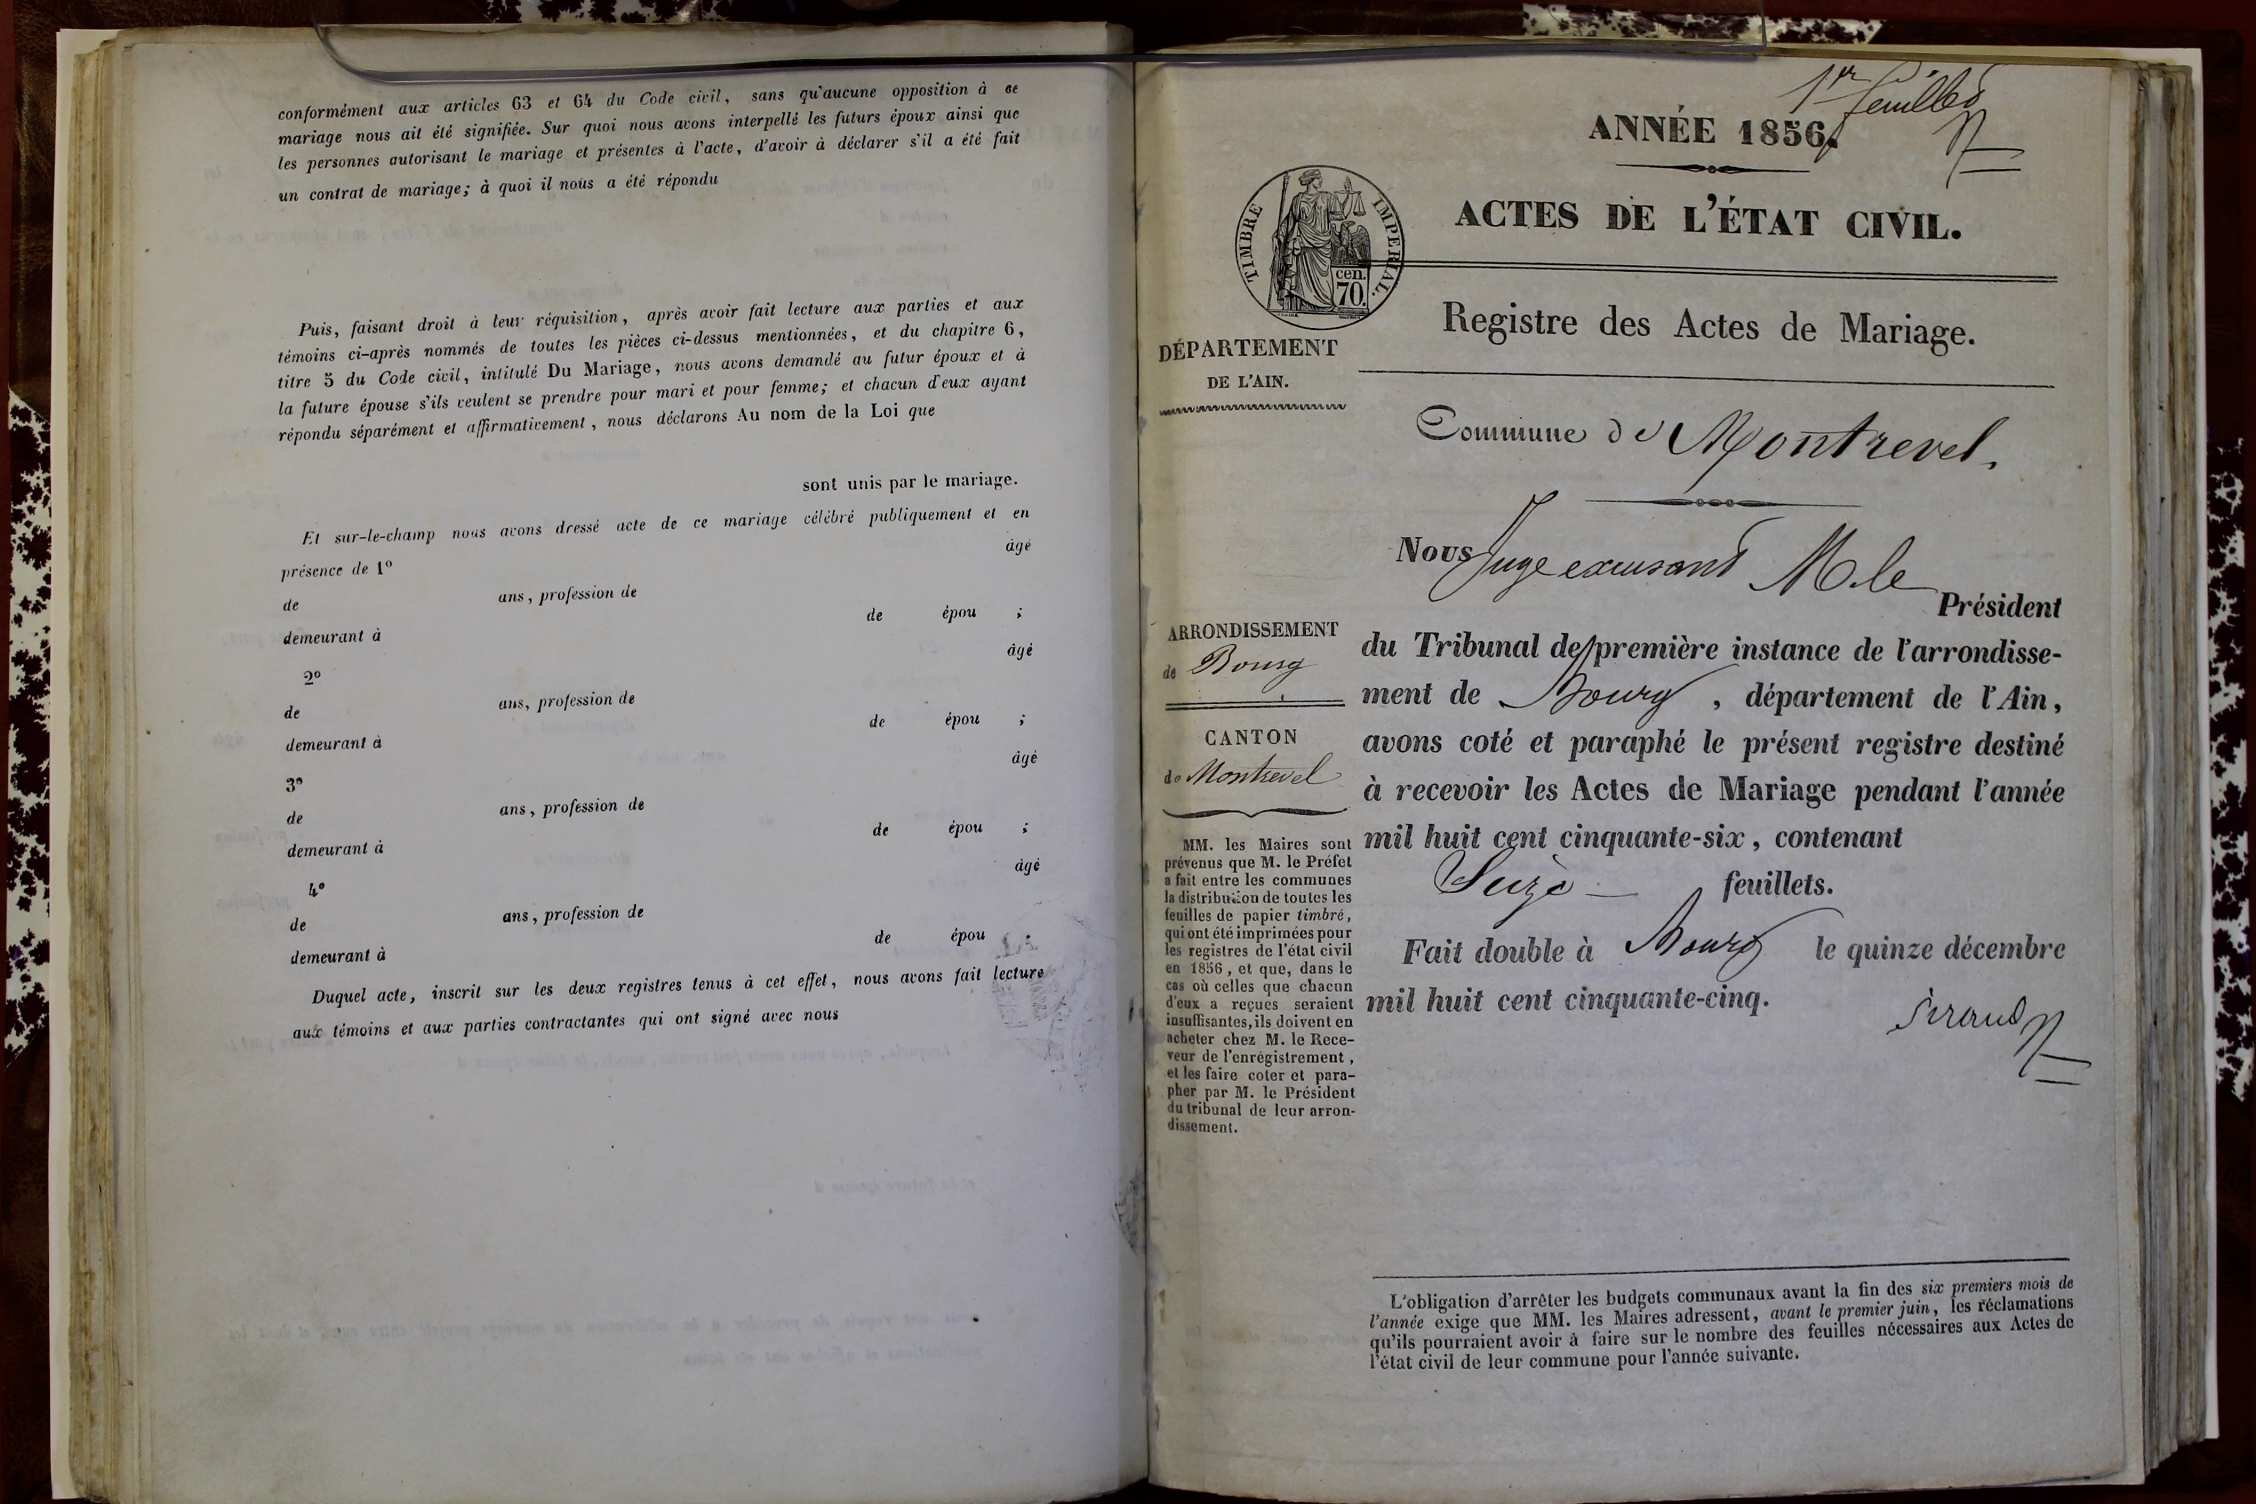 conformément aux articles 63 et 64 du Code civil, sans qu'aucune opposition à ce
mariage nous ait été signifiée. Sur quoi nous avons interpellé les futurs époux ainsi que
les personnes autorisant le mariage et présentes à l'acte, d'avoir à déclarer s'il a été fait
un contrat de mariage; à quoi il nous a été répondu
Puis, faisant droit à leur réquisition, après avoir fait lecture aux parties et aux
témoins ci-après nommés de toutes les pièces ci-dessus mentionnées, et du chapitre 6,
titre 5 du Code civil, intitulé Du Mariage, nous avons demandé au futur époux et à
la future épouse s'ils veulent se prendre pour mari et pour femme; et chacun d'eux ayant
répondu séparément et affirmativement, nous déclarons Au nom de la Loi que
sont unis par le mariage.
Et sur-le-champ nous avons dressé acte de ce mariage célébré publiquement et en
présence de 1º âgé
de ans, profession de
demeurant à de épou ;
2º âgé
de ans, profession de
demeurant à de épou ;
3º âgé
de ans, profession de
demeurant à de épou ;
4º âgé
de ans, profession de
demeurant à de épou .
Duquel acte, inscrit sur les deux registres tenus à cet effet, nous avons fait lecture
aux témoins et aux parties contractantes qui ont signé avec nous
1er feuillet
ANNÉE 1856.
ACTES DE L'ÉTAT CIVIL.
TIMBRE IMPERIAL.
cen.
70.
Registre des Actes de Mariage.
DÉPARTEMENT
DE L'AIN.
Commune de Montrevel.
ARRONDISSEMENT
de Bourg
CANTON
de Montrevel
MM. les Maires sont
prévenus que M. le Préfet
a fait entre les communes
la distribution de toutes les
feuilles de papier timbré,
qui ont été imprimées pour
les registres de l'état civil
en 1856, et que, dans le
cas où celles que chacun
d'eux a reçues seraient
insuffisantes, ils doivent en
acheter chez M. le Rece-
veur de l'enrégistrement,
et les faire coter et para-
pher par M. le Président
du tribunal de leur arron-
dissement.
Nous Juge excusant M. le
Président
du Tribunal de première instance de l'arrondisse-
ment de Bourg, département de l'Ain,
avons coté et paraphé le présent registre destiné
à recevoir les Actes de Mariage pendant l'année
mil huit cent cinquante-six, contenant
Seize feuillets.
Fait double à Bourg le quinze décembre
mil huit cent cinquante-cinq.
L'obligation d'arrêter les budgets communaux avant la fin des six premiers mois de
l'année exige que MM. les Maires adressent, avant le premier juin, les réclamations
qu'ils pourraient avoir à faire sur le nombre des feuilles nécessaires aux Actes de
l'état civil de leur commune pour l'année suivante.